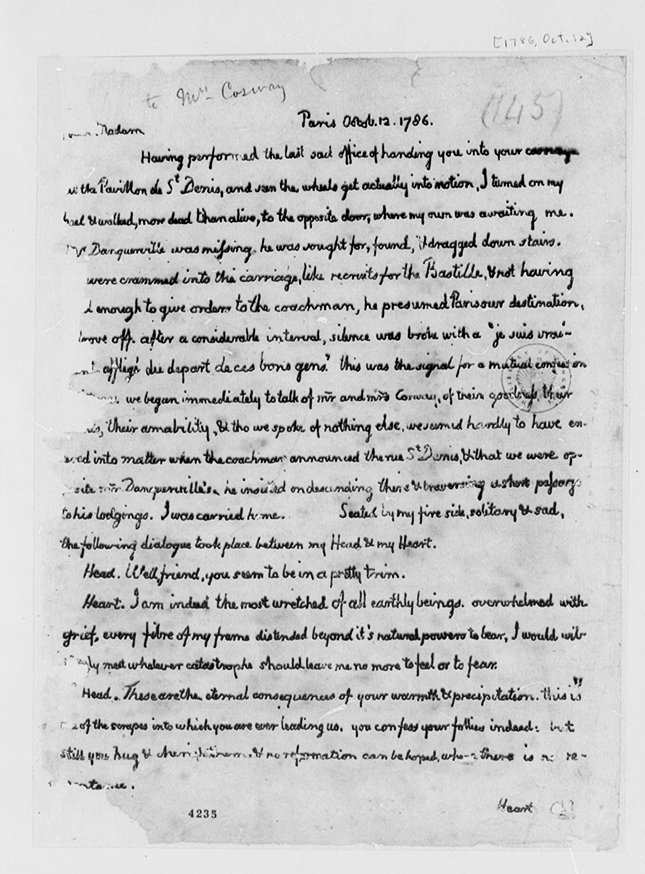 [1786, Oct. 12]
to Mrs. Cosway
(145)
Paris Octob. 12. 1786.
Madam
Having performed the last sad office of handing you into your carriage
at the Pavillon de St. Denis, and seen the wheels get actually into motion, I turned on my
heel & walked, more dead than alive, to the opposite door, where my own was awaiting me.
Mr. Danquerville was missing. he was sought for, found, & dragged down stairs.
were crammed into the carriage, like recruits for the Bastille, & not having
enough to give orders to the coachman, he presumed Paris our destination,
drove off. after a considerable interval, silence was broke with a "je suis vrai-
ment affligé du depart de ces bons gens." this was the signal for a mutual confession
we began immediately to talk of mr and mrs Cosway, of their goodness, their
their amability, & tho we spoke of nothing else, we seemed hardly to have en-
tered into matter when the coachman announced the rue St. Denis, & that we were op-
posite mr Danquerville's. he insisted on descending there & traversing a short passage
to his lodgings. I was carried home. Seated by my fire side, solitary & sad,
the following dialogue took place between my Head & my Heart.
Head. Well, friend, you seem to be in a pretty trim.
Heart. I am indeed the most wretched of all earthly beings. overwhelmed with
grief, every fibre of my frame distended beyond it's natural powers to bear, I would wil-
lingly meet whatever catastrophe should leave me no more to feel or to fear.
Head. These are the eternal consequences of your warmth & precipitation. this is
of the scrapes into which you are ever leading us. you confess your follies indeed: but
still you hug & cherish them, & no reformation can be hoped, where there is no re-
pentance.
Heart
4235